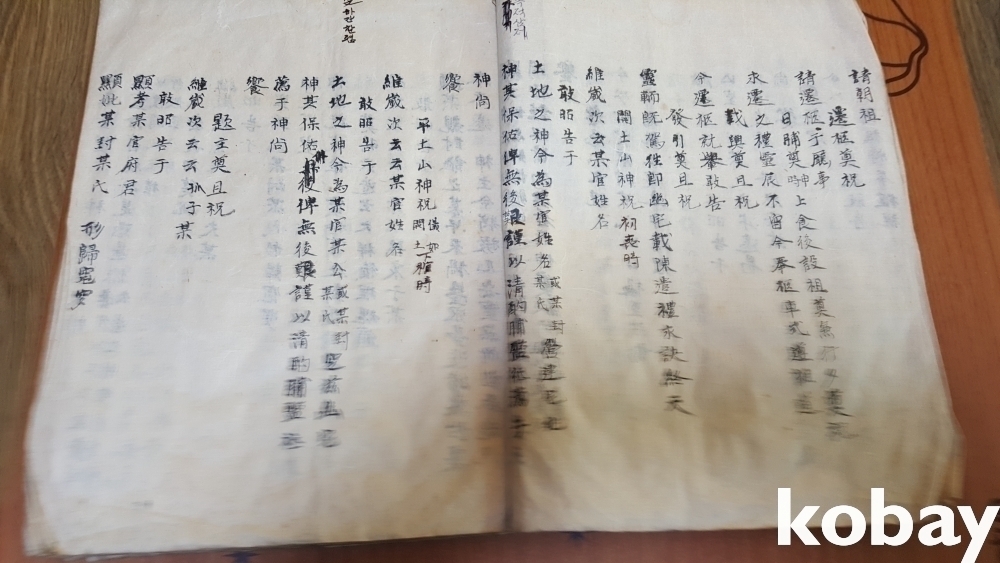 請朝祖
遷柩奠祝
請遷柩于廳事
日晡奠時上食後設祖奠
永遷之禮靈辰不留今奉柩車式遵祖道
載輿奠且祝
今遷柩就轝敢告
發引奠且祝
靈輀旣駕往卽幽宅載陳遣禮永訣終天
開土山神祝 初喪時
維歲次云云某官姓名
敢昭告于
土地之神今爲某官姓名 或某封某氏 營建宅兆
神其保佑俾無後艱謹以清酌脯醢祗薦于
神尙
饗
平土山神祝
維歲次云云某官姓名
敢昭告于
土地之神今爲某官某公 或某封某氏
神其保佑 俾無後艱謹以清酌脯醢
薦于神尙
饗
題主奠且祝
維歲次云云孤子某
敢昭告于
顯考某官府君
顯妣某封某氏
形歸窀穸
kobay